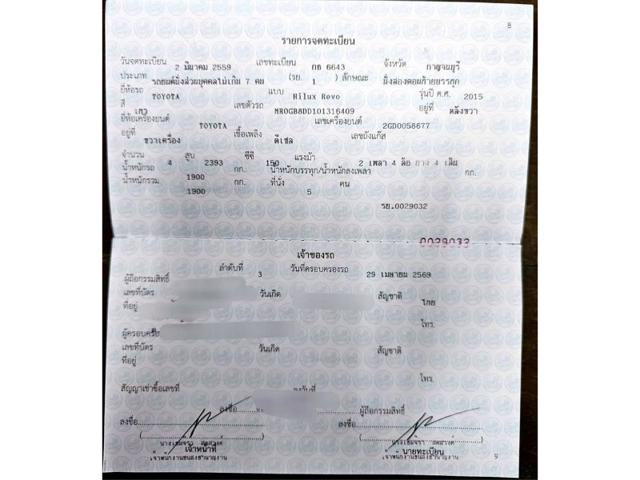 8
รายการจดทะเบียน
วันจดทะเบียน 2 มีนาคม 2559 เลขทะเบียน กต 6643 จังหวัด กาญจนบุรี
ประเภท รถยนต์นั่งส่วนบุคคลไม่เกิน 7 คน (รย. 1 ) ลักษณะ นั่งสองตอนท้ายบรรทุก
ยี่ห้อรถ TOYOTA แบบ Hilux Revo รุ่นปี ค.ศ. 2015
สี เทา เลขตัวรถ MR0GB8DD101316409 อยู่ที่ คัสซีขวา
ยี่ห้อเครื่องยนต์ TOYOTA เลขเครื่องยนต์ 2GD0058677
อยู่ที่ ขวาเครื่อง เชื้อเพลิง ดีเซล เลขถังแก๊ส
จำนวน 4 สูบ 2393 ซีซี 150 แรงม้า 2 เพลา 4 ล้อ ยาง 4 เส้น
น้ำหนักรถ 1900 กก. น้ำหนักบรรทุก/น้ำหนักลงเพลา กก.
น้ำหนักรวม 1900 กก. ที่นั่ง 5 คน
รย.0029032
0029033
เจ้าของรถ
ลำดับที่ 3 วันที่ครอบครองรถ 29 เมษายน 2569
ผู้ถือกรรมสิทธิ์
เลขที่บัตร วันเกิด สัญชาติ ไทย
ที่อยู่
โทร.
ผู้ครอบครอง
เลขที่บัตร วันเกิด สัญชาติ
ที่อยู่
โทร.
สัญญาเช่าซื้อเลขที่ ลงวันที่
ลงชื่อ ผู้ถือกรรมสิทธิ์
ลงชื่อ ลงชื่อ
เจ้าหน้าที่ นายทะเบียน
เจ้าพนักงานขนส่งชำนาญงาน เจ้าพนักงานขนส่งชำนาญงาน
9